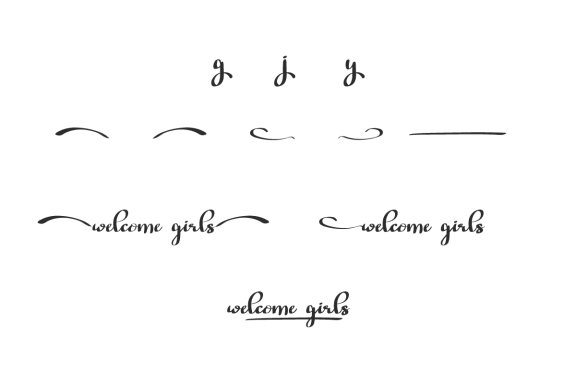 g j y
welcome girls welcome girls
welcome girls